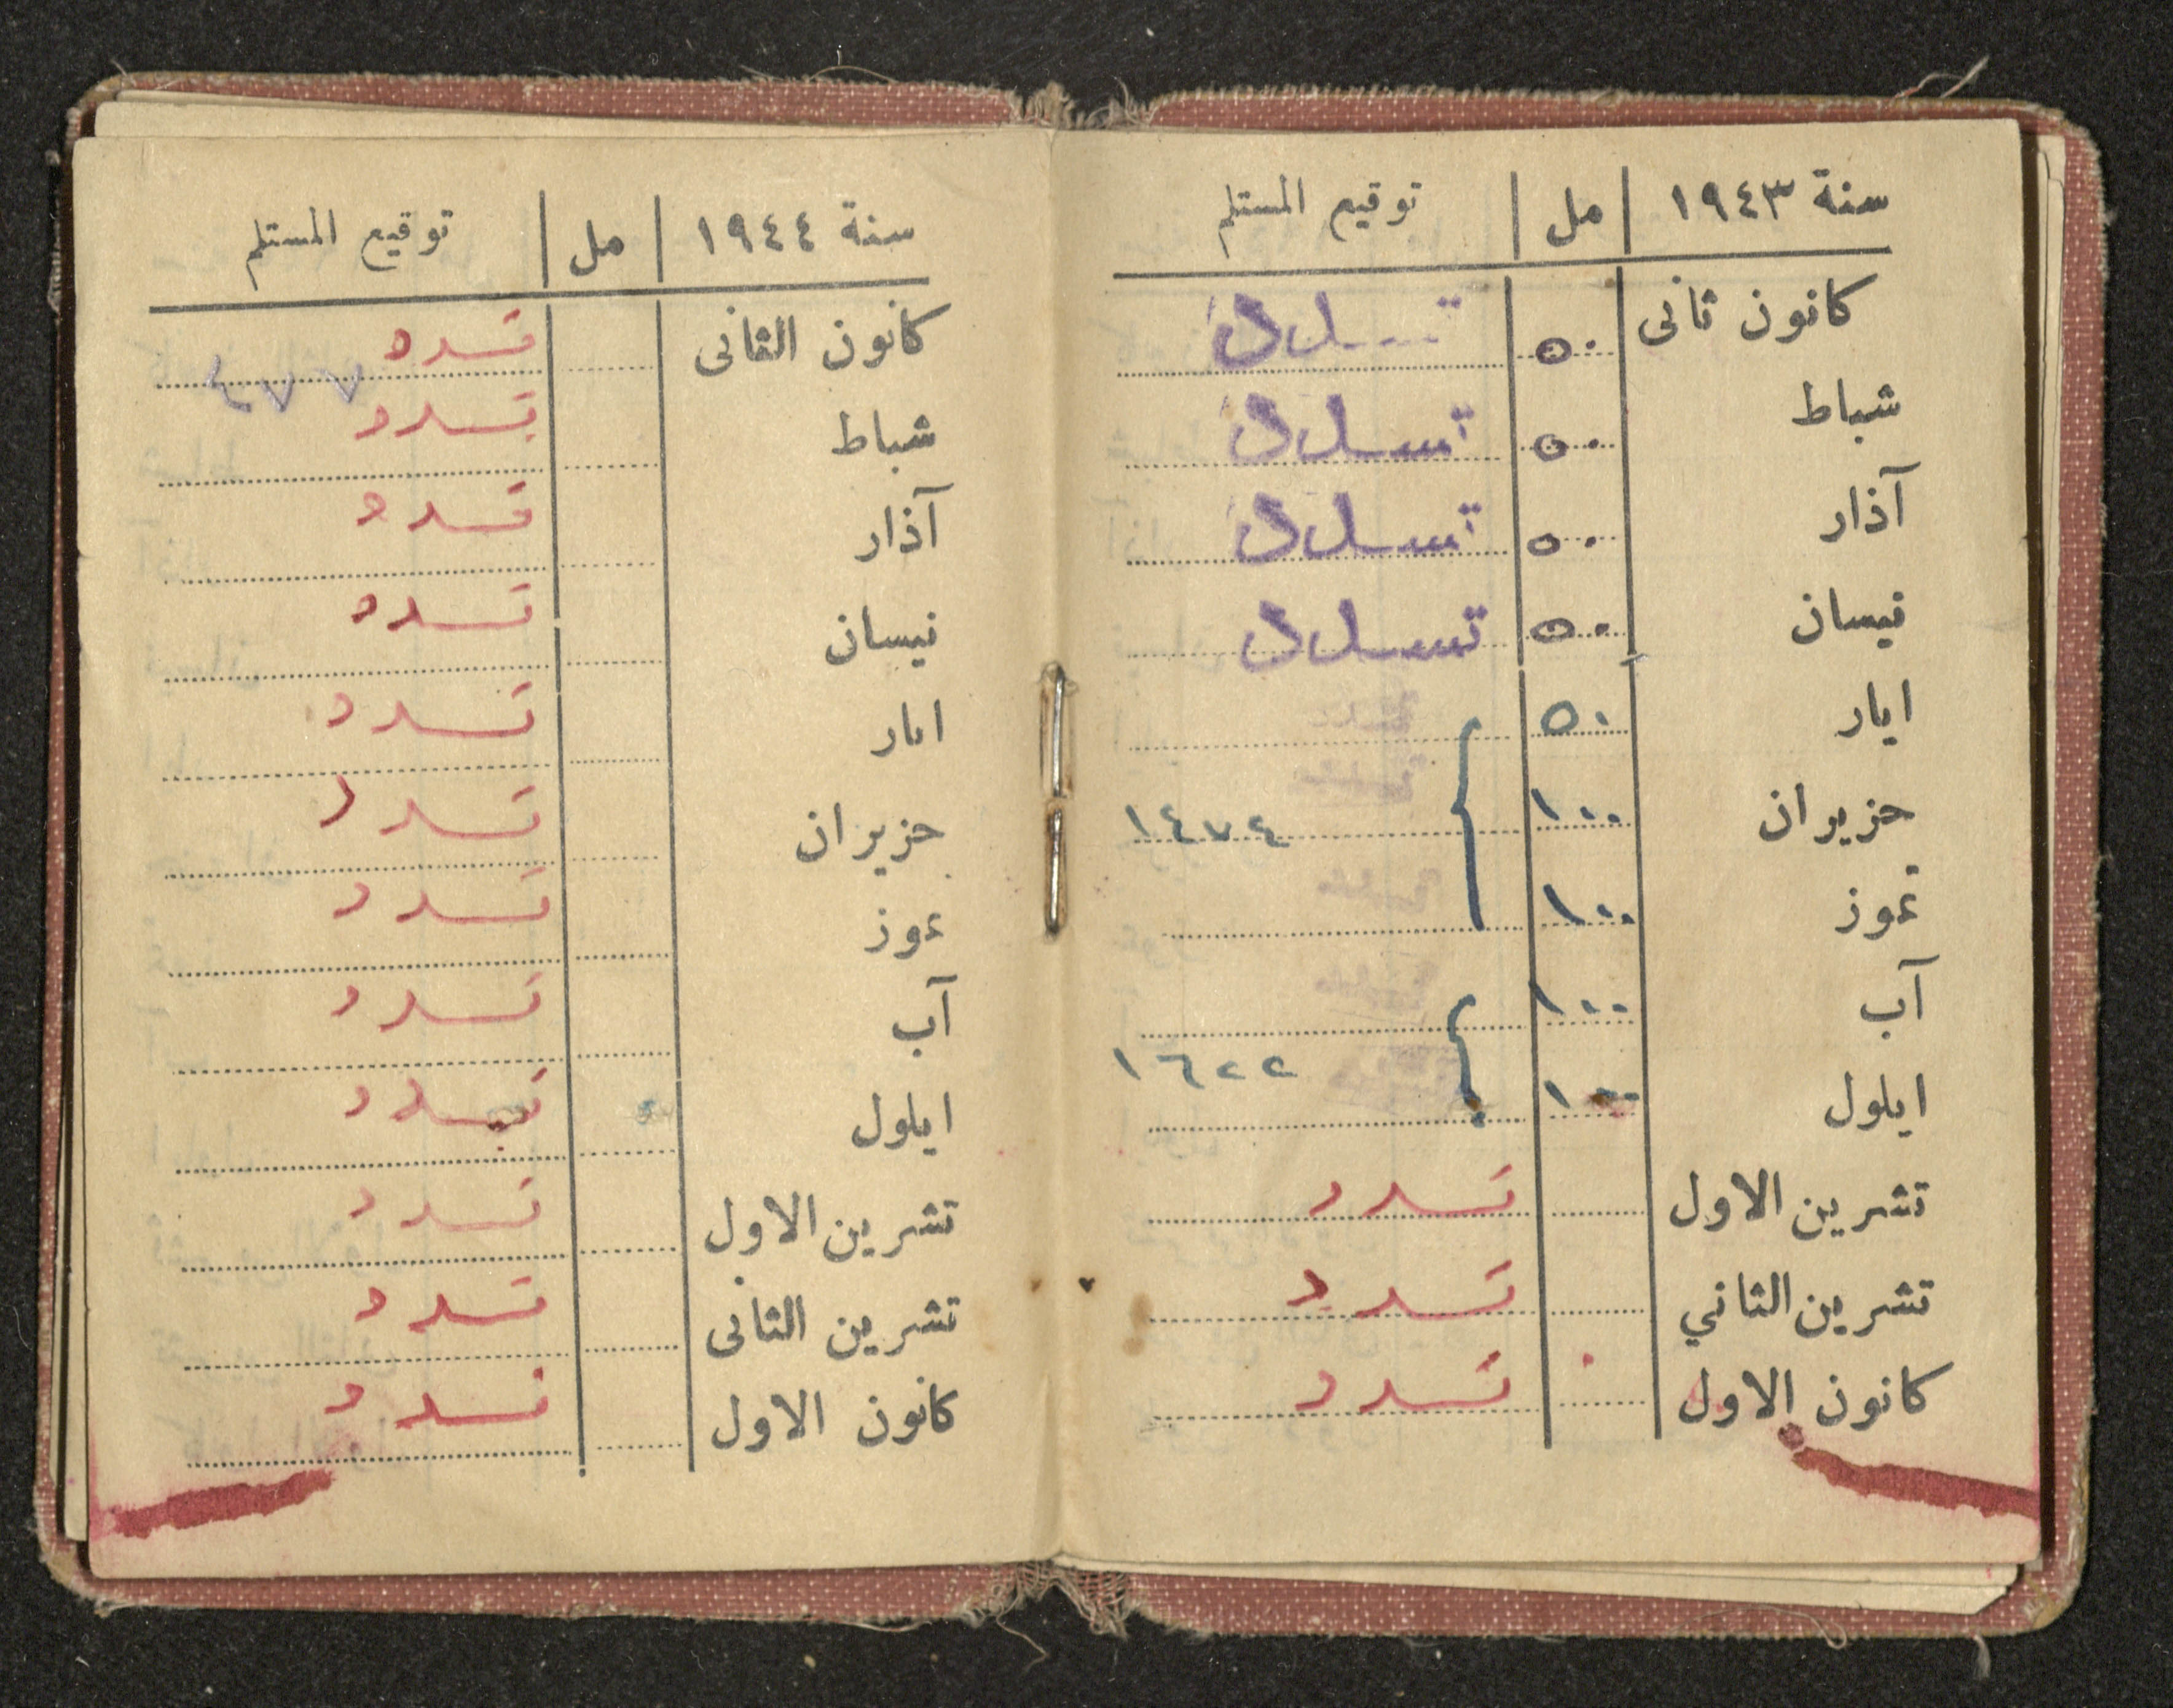 سنة ١٩٤٣ مل توقيع المستلم
كانون ثانى ٥٠ تسدد
شباط ٥٠ تسدد
آذار ٥٠ تسدد
نيسان ٥٠ تسدد
ايار ٥٠
حزيران ١٠٠ ١٤٧٤
تموز ١٠٠
آب ١٠٠
١٦٢٢
ايلول ١٠٠
تشرين الاول تسدد
تشرين الثاني تسدد
كانون الاول تسدد
سنة ١٩٤٤ مل توقيع المستلم
كانون الثانى تسدد
شباط تسدد
آذار تسدد
نيسان تسدد
ايار تسدد
حزيران تسدد
تموز تسدد
آب تسدد
ايلول تسدد
تشرين الاول تسدد
تشرين الثانى تسدد
كانون الاول تسدد